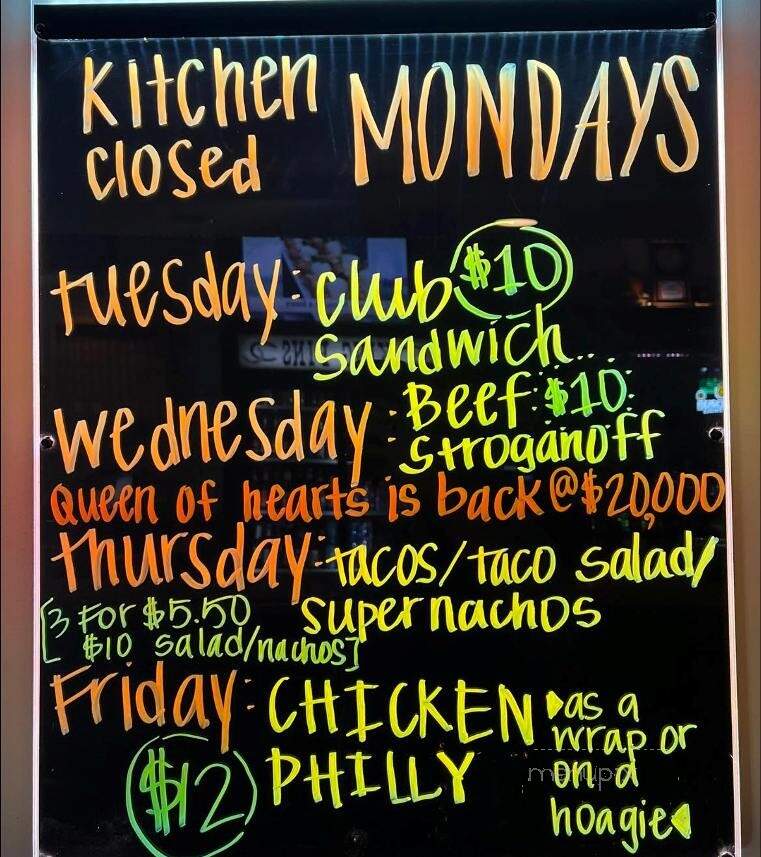 Kitchen closed MONDAYS
tuesday: club $10
sandwich
wednesday: Beef $10
stroganoff
Queen of hearts is back @ $20,000
thursday: tacos/taco salad/
super nachos
[3 for $5.50
$10 salad/nachos]
Friday: CHICKEN
PHILLY
as a
wrap or
on a
hoagie
$12